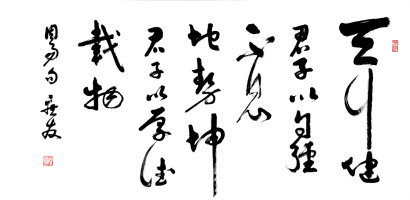 天行健
君子以自強
不息
地勢坤
君子以厚德
載物
周易句